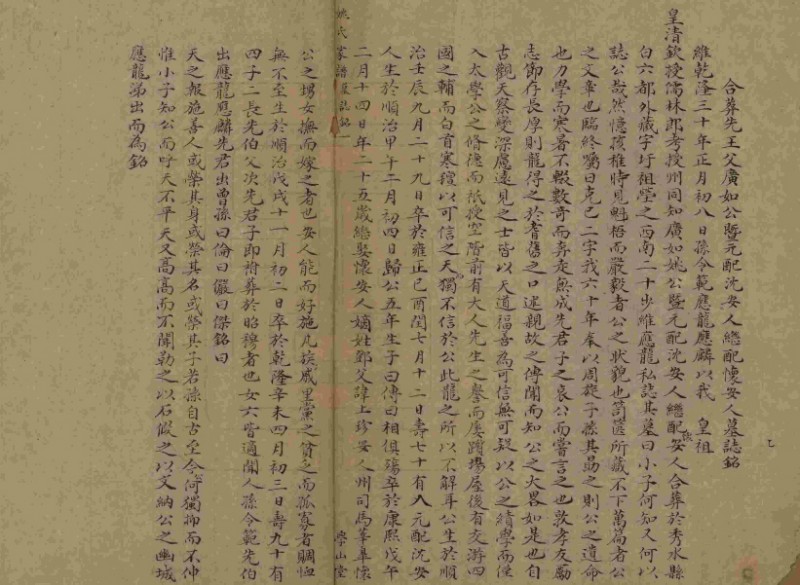 合葬先王父廣如公暨元配沈安人繼配懷安人墓誌銘
維乾隆三十年正月初八日孫令範應龍應麟以我 皇祖
皇清欽授儒林郎考授州同知廣如姚公暨元配沈安人繼配懷安人合葬於秀水縣
白六都外藏字圩祖塋之西南二十步維應龍私誌其墓曰小子何知又何以
誌公哉然憶孩稚時見魁梧而嚴毅者公之狀貌也笥篋所藏不下萬篇者公
之文章也臨終囑曰克己二字我六十年奉以周旋子孫其勗之則公之遺命
也力學而寒暑不輟數奇而奔走無成先君子之哀公而嘗言之也敦孝友勵
志節存長厚則龍得之於耆舊之口述親故之傳聞而知公之大畧如是也自
古觀天察變深慮遠見之士皆以天道福善為可信無可疑以公之績學而僅
入太學公之脩德而祇授空階前有大人先生之譽而屢躓塲屋後有交游四
國之輔而白首寒氊以可信之天獨不信於公此龍之所以不解耳公生於順
治壬辰九月二十九日卒於雍正己酉閏七月十二日壽七十有八元配沈安
人生於順治甲午二月初四日歸公五年生子曰傳曰相俱殤卒於康熙戊午
二月十四日年二十五歲繼娶懷安人嫡姓鄧父諱上珍安人州司馬峯皋懷
姚氏家譜墓誌銘
學山堂
公之甥女撫而嫁之者也安人能而好施凡族戚里黨之貧乏而孤寡者賙恤
無不至生於順治戊戌十一月初二日卒於乾隆辛未四月初三日壽九十有
四子二長先伯父次先君子即祔葬於昭穆者也女六皆適聞人孫令範先伯
出應龍應麟先君出曾孫曰倫曰儼曰傑銘曰
天之報施善人或榮其身或榮其名或榮其子若孫自古至今何獨抑而不伸
惟小子知公而呼天不平天又高高而不聞勒之以石假之以文納公之幽城
應龍涕出而為銘